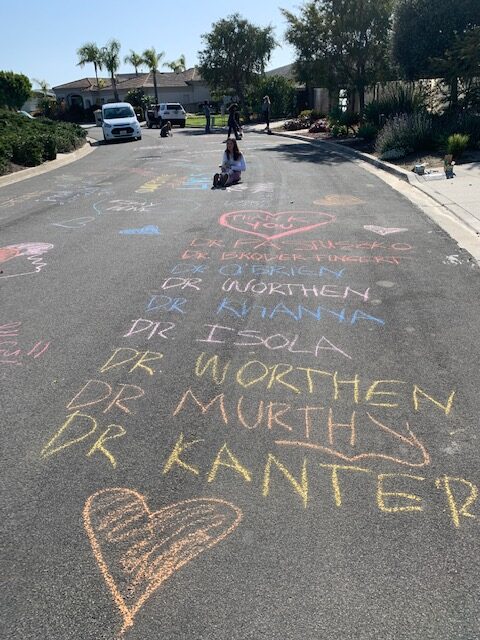 THANK
YOU
DR FAX JUSSKO
DR BROWER FINGERT
DR O'BRIEN
DR WORTHEN
DR KHANNA
DR ISOLA
DR. WORTHEN
DR MURTHY
DR KANTER